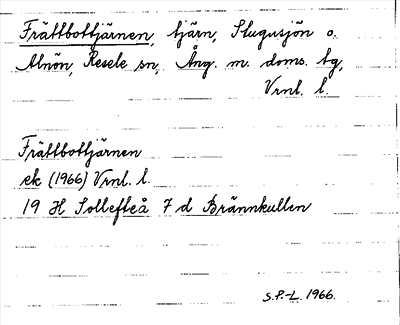 Frättbottjärnen, tjärn, Stugusjön o.
Alnön, Resele sn, Ång. m. doms. tg,
Vrnl. l.
Frättbottjärnen
ek (1966) Vrnl. l.
19 H Sollefteå 7 d Brännkullen
S.P.-L. 1966.